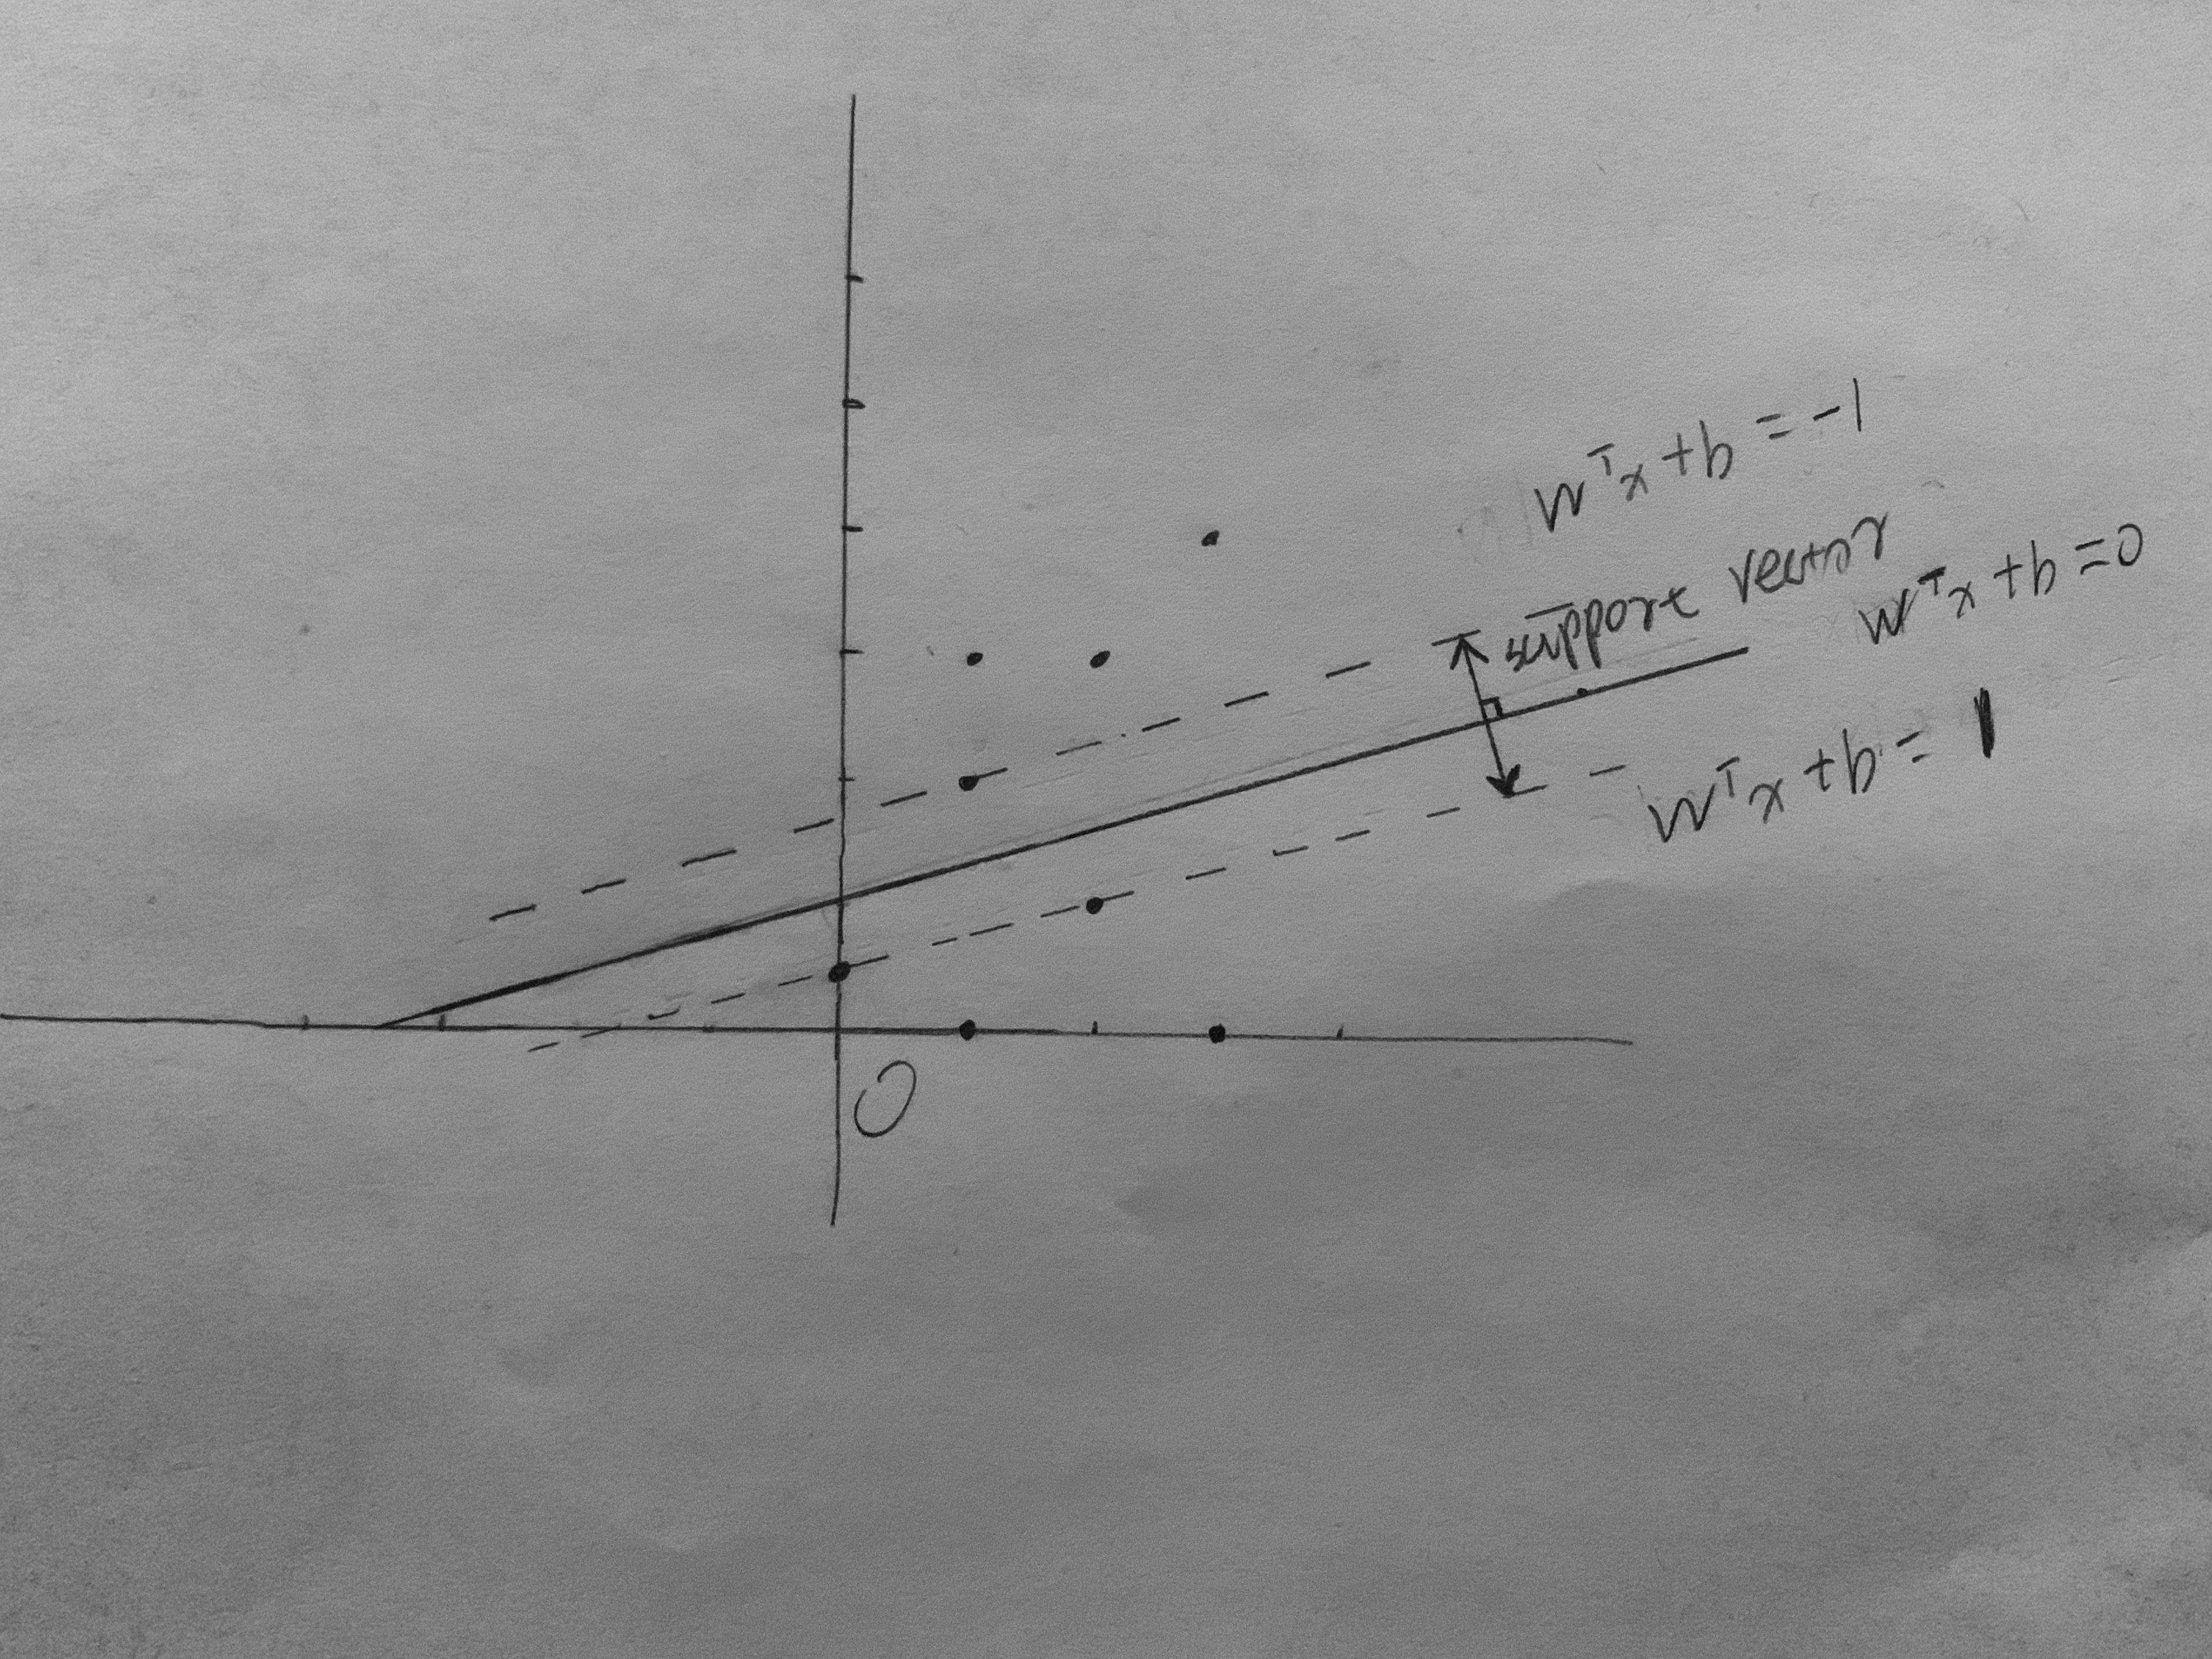 W^T x + b = -1
support vector
W^T x + b = 0
W^T x + b = 1
O